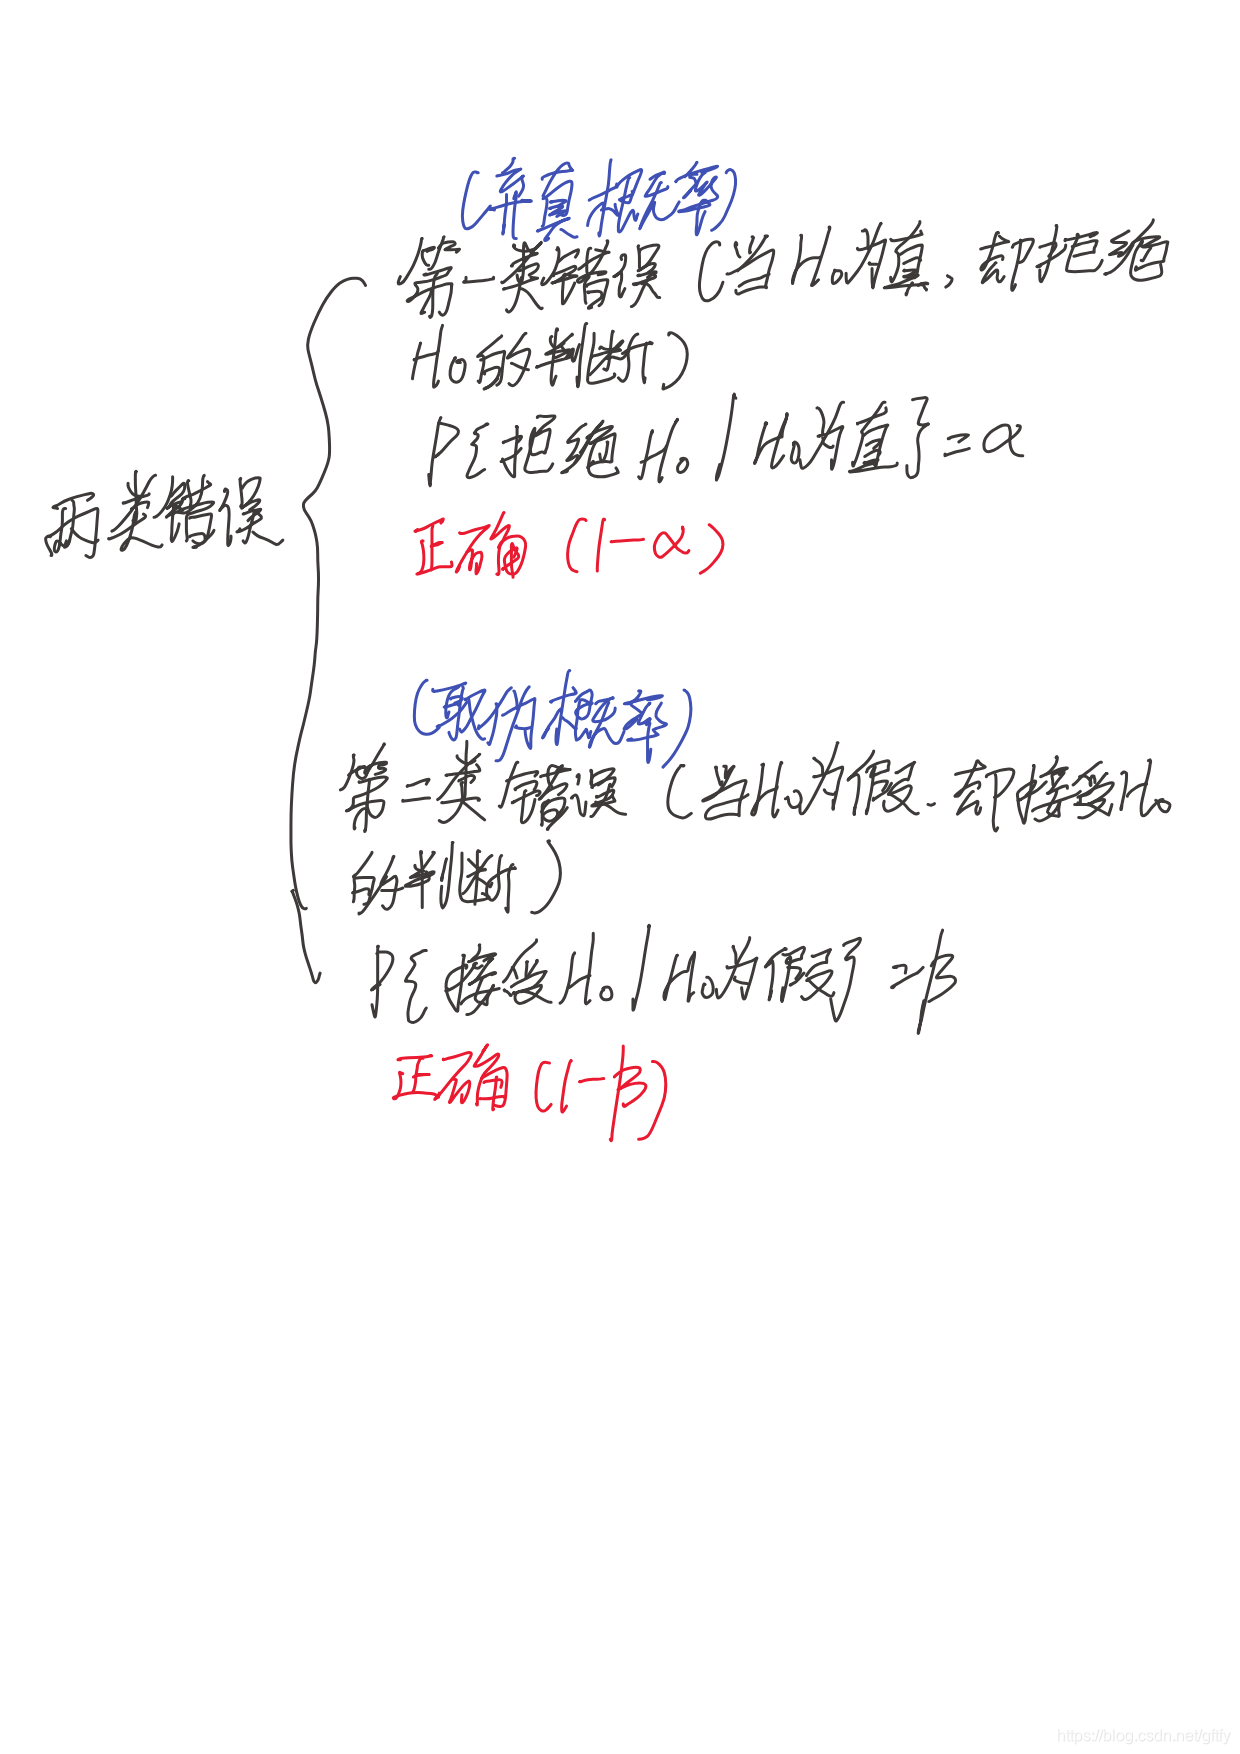 (弃真概率)
第一类错误(当H₀为真,却拒绝
H₀的判断)
P{拒绝H₀|H₀为真}=α
两类错误
正确(1-α)
(取伪概率)
第二类错误(当H₀为假.却接受H₀
的判断)
P{接受H₀|H₀为假}=β
正确(1-β)
https://blog.csdn.net/gftfy